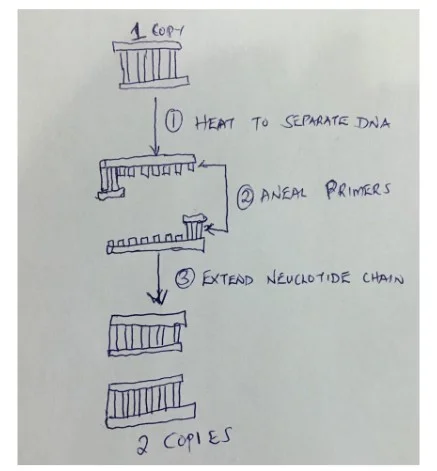 1 COPY
① HEAT TO SEPARATE DNA
② ANEAL PRIMERS
③ EXTEND NEUCLOTIDE CHAIN
2 COPIES